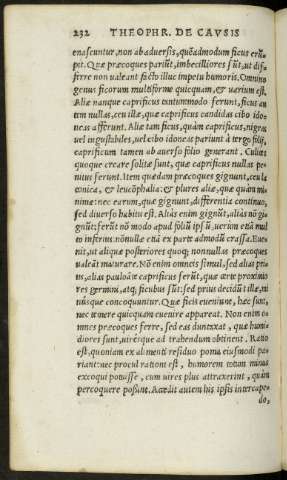 232 THEOPHR. DE CAVSIS
enascuntur, non ab aduersis, quēadmodum ficus erū⸗
pit. Quæ præcoques pariūt, imbecilliores sūt, ut dif⸗
ferre non ualeant facto illuc impetu humoris. Omnino
genus ficorum multiforme quicquam, et uarium est.
Aliæ nanque caprificus tantummodo ferunt, ficus au
tem nullas, ceu illæ, quæ caprificus candidas cibo ido⸗
neas afferunt. Aliæ tam ficus, quàm caprificus, nigras
uel ingustabiles, uel cibo idoneas pariunt à tergo folij,
caprificum tamen ab auerso folio generant. Cultæ
quoque creare solitæ sunt, quæ caprificus nullas pe
nitus ferunt. Item quædam præcoques gignunt, ceu la
conica, et leucophalia: et plures aliæ, quæ quàm mi⸗
nimæ: nec earum, quæ gignunt, differentia continuo,
sed diuerso habitu est. Aliàs enim gignūt, aliàs nō gi⸗
gnūt: ferūt nō modo apud foliū ipsū, uerùm etiā mul
to inferius. nōnullæ etiā ex parte admodū crassa. Eue⸗
nit, ut aliquæ posteriores quoq; nonnullas præcoques
ualeāt maturare. Nō enim omneis simul, sed alias priu
us, alias pauloāte caprificus ferūt, quæ arte proximio
res germini, atq; ficubus sūt: sed prius deciduūt illæ, ni
núsque concoquuntur. Quæ ficis eueniunt, hæc sunt,
nec temere quicquam euenire appareat. Non enim o⸗
mnes præcoques ferre, sed eas duntaxat, quæ humi⸗
diores sunt, uirésque ad trahendum obtinent. Ratio
est, quoniam ex alimenti residuo poma eiusmodi pa⸗
riant: nec procul rationi est, humorem totam minus
excoqui potuisse, cum uires plus attraxerint, quàm
percoquere possint. Accedit autem his ipsis intercape⸗
do,